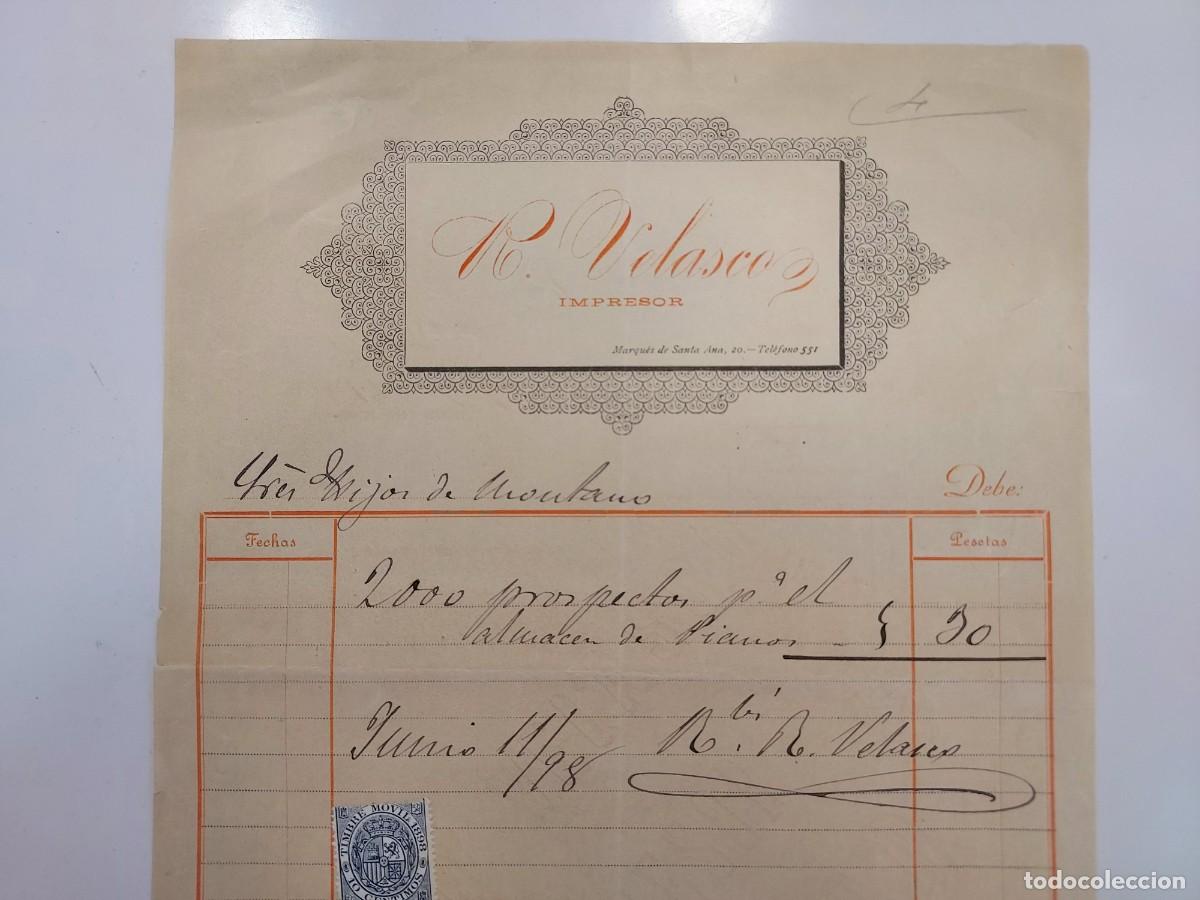 R. Velasco
IMPRESOR
Marqués de Santa Ana, 20.—Teléfono 551
Hijos de Montano
Debe:
Fechas
Pesetas
2000 prospectos p.ª el
almacen de Pianos 30
Junio 11/98 R.bí R. Velasco
TIMBRE MOVIL 1898
10 CENTIMOS
todocoleccion